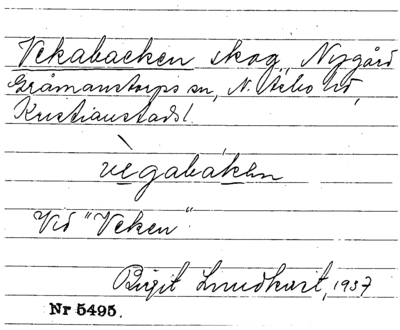 Vekabacken skog, Nygård
Gråmanstorps sn, N. Åsbo hd,
Kristianstads l.
vègabáken
Vid "Veken"
Birgit Lundkvist, 1937
Nr 5495.